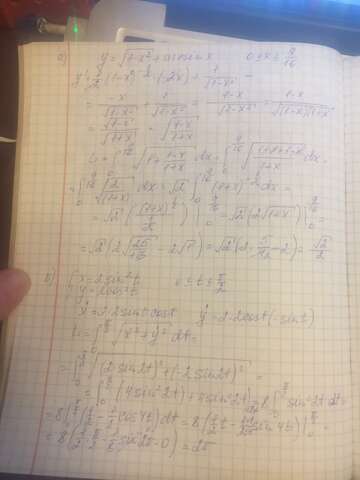 a) y = √(1-x²) + arcsin x    0 ≤ x ≤ 9/16
y' = 1/2 (1-x²)^(-1/2) (-2x) + 1/√(1-x²) =
= -x/√(1-x²) + 1/√(1-x²) = 1-x/√(1-x²) = 1-x/√((1-x)(1+x)) =
= √(1-x)/√(1+x) = √((1-x)/(1+x))
L = ∫₀^(9/16) √(1 + (1-x)/(1+x)) dx = ∫₀^(9/16) √((1+x+1-x)/(1+x)) dx =
= ∫₀^(9/16) √(2/(1+x)) dx = √2 ∫₀^(9/16) (1+x)^(-1/2) dx =
= √2 ((1+x)^(1/2) / (1/2)) |₀^(9/16) = √2 (2√(1+x)) |₀^(9/16) =
= √2 (2√(25/16) - 2√1) = √2 (2·5/4 - 2) = √2/2
b) { x = 2 sin² t    0 ≤ t ≤ π/2
{ y = 2 cos² t
x' = 2·2 sin t cos t    y' = 2·2 cos t (-sin t)
L = ∫₀^(π/2) √(x'² + y'²) dt =
= ∫₀^(π/2) √((2 sin 2t)² + (-2 sin 2t)²) =
= ∫₀^(π/2) √(4 sin² 2t + 4 sin² 2t) dt = 8 ∫₀^(π/2) sin² 2t dt =
= 8 ∫₀^(π/2) (1/2 - 1/2 cos 4t) dt = 8 (1/2 t - sin 4t) |₀^(π/2) =
= 8 (1/2 · π/2 - 1/8 sin 2π - 0) = 2π